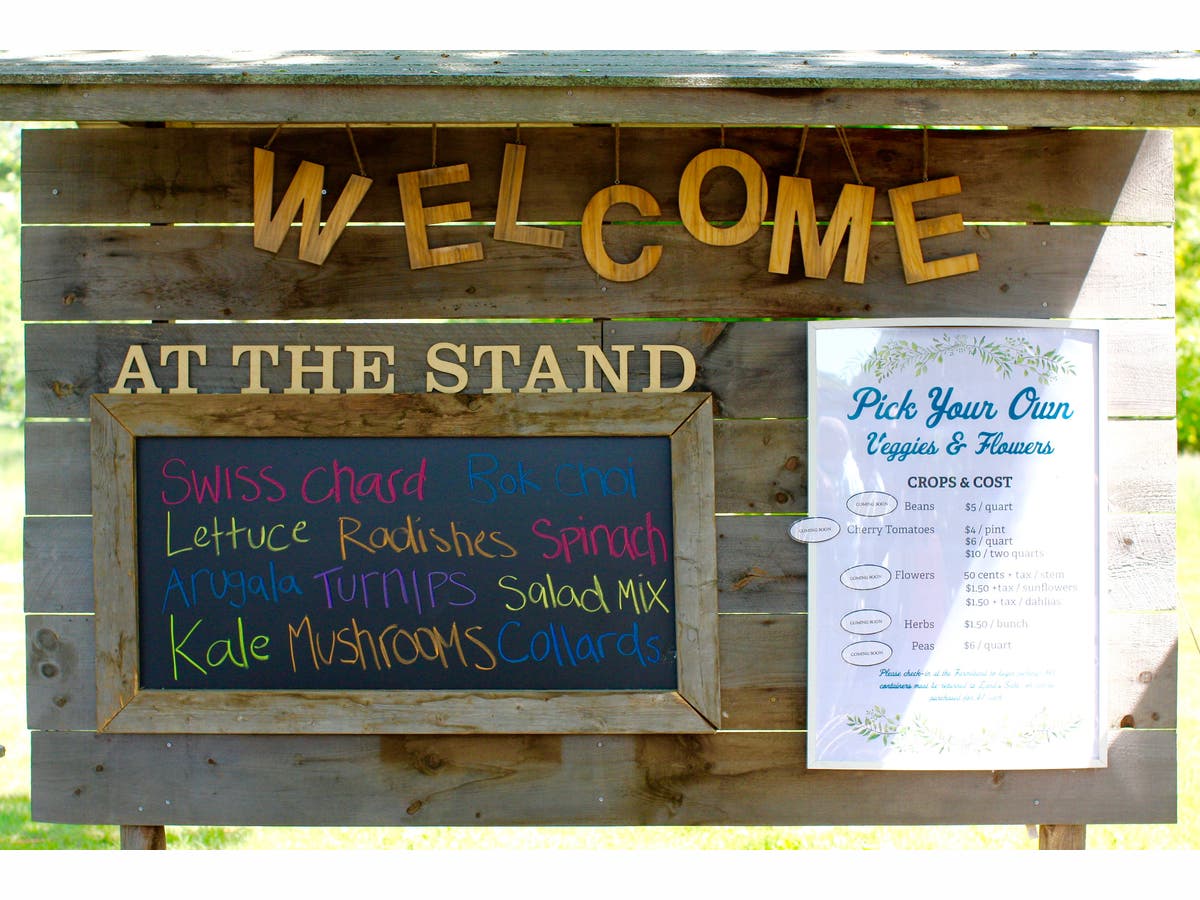 WELCOME
AT THE STAND
Swiss Chard Bok Choi
Lettuce Radishes Spinach
Arugala Turnips Salad Mix
Kale Mushrooms Collards
Pick Your Own
Veggies & Flowers
CROPS & COST
COMING SOON Beans $5 / quart
COMING SOON Cherry Tomatoes $4 / pint
$6 / quart
$10 / two quarts
COMING SOON Flowers 50 cents + tax / stem
$1.50 +tax / sunflowers
$1.50 + tax / dahlias
COMING SOON Herbs $1.50 / bunch
COMING SOON Peas $6 / quart
Please check-in at the Farmstand to begin
containers must be returned to Land's Sake or
purchased for